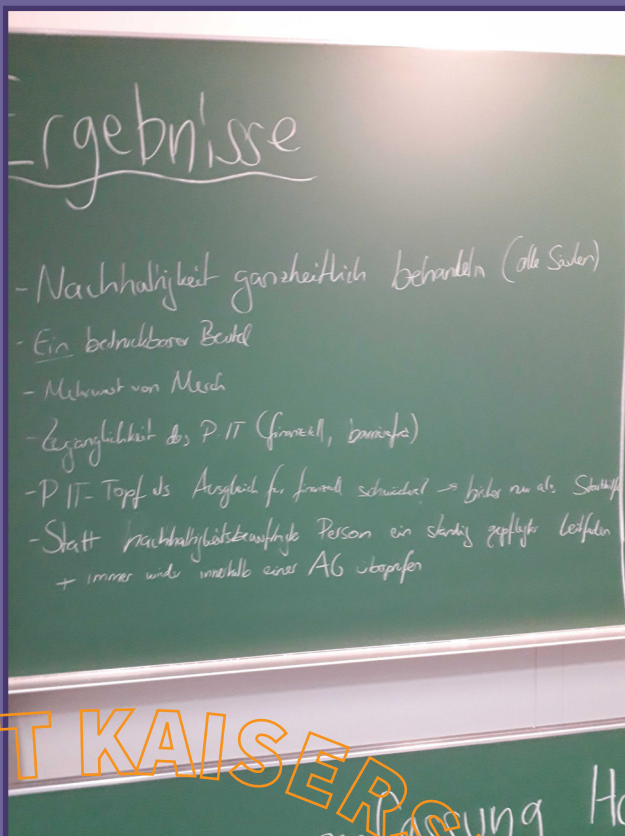 Ergebnisse
- Nachhaltigkeit ganzheitlich behandeln (alle Säulen)
- Ein bedruckbarer Beutel
- Mehrwert von Merch
- Zugänglichkeit des PIT (finanziell, barrierefrei)
- PIT-Topf als Ausgleich für finanziell schwächere → bisher nur als Starthilfe
- Statt nachhaltigkeitsbeauftragte Person ein ständig gepflegter Leitfaden
+ immer wieder innerhalb einer AG überprüfen
T KAISERS
assung Ho